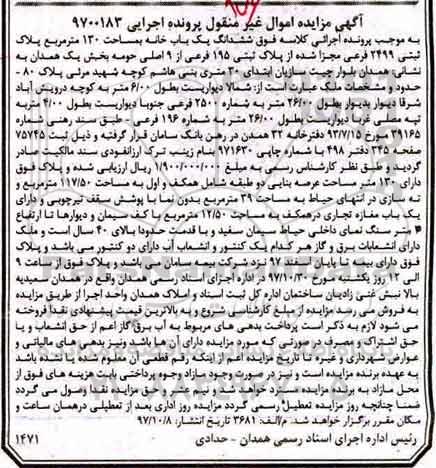 آگهی مزایده اموال غیر منقول پرونده اجرایی ۹۷۰۰۱۸۳
به موجب پرونده اجرائی کلاسه فوق ششدانگ یک باب خانه بمساحت ۱۳۰ مترمربع پلاک
ثبتی ۲۴۹۹ فرعی مجزا شده از پلاک ثبتی ۱۹۵ فرعی از ۹ اصلی حومه بخش یک همدان به
نشانی: همدان بلوار چیت سازیان ابتدای ۲۰ متری بنی هاشم کوچه شهید مرئی پلاک ۸۰ -
حدود و مشخصات ملک عبارت است از: شمالا دیواریست بطول ۶/۰۰ متر به کوچه درویش آباد
شرقا دیوار بدیوار بطول ۲۶/۰۰ متر به شماره ۲۵۰۰ فرعی جنوبا دیواریست بطول ۴/۰۰ متر به
تپه مصلی غربا دیواریست بطول ۲۶/۰۰ متر به شماره ۱۹۶ فرعی - طبق سند رهنی شماره
۳۹۱۶۵ مورخ ۹۳/۷/۱۵ دفترخانه ۳۲ همدان در رهن بانک سامان قرار گرفته و ذیل ثبت ۷۵۷۴۵
صفحه ۳۴۵ دفتر ۴۹۸ با شماره چاپی ۹۷۱۶۳۰ بنام زینب ترک ارزانفودی سند مالکیت صادر
گردید و طبق نظر کارشناس رسمی به مبلغ ۱/۹۰۰/۰۰۰/۰۰۰ ریال ارزیابی شده و پلاک فوق
دارای ۱۳۰ متر مساحت عرصه بنایی دو طبقه شامل همکف و اول به مساحت ۱۱۷/۵۰ مترمربع و
ته سازی در انتهای حیاط به مساحت ۳۹ مترمربع بدون نما با پوشش سقف تیرچوبی و دارای
یک باب مغازه تجاری درهمکف به مساحت ۱۲/۵۰ مترمربع با کف سیمان و دیوارها تا ارتفاع
متر سنگ نمای داخلی حیاط سیمان سفید و با قدمت حدودا بالای ۴۰ سال است و ملک
دارای انشعابات برق و گاز هر کدام یک کنتور و انشعاب آب دارای دو کنتور می باشد و پلاک
فوق دارای بیمه تا پایان اسفند ۹۷ نزد شرکت بیمه سامان می باشد و پلاک فوق از ساعت ۹
الی ۱۲ روز یکشنبه مورخ ۹۷/۱۰/۳۰ در اداره اجرای اسناد رسمی همدان واقع در همدان سعیدیه
بالا نبش غنی زادیان ساختمان اداره کل ثبت اسناد و املاک همدان واحد اجرا از طریق مزایده
به فروش می رسد مزایده از مبلغ کارشناسی شروع و به بالاترین قیمت پیشنهادی نقدا فروخته
می شود لازم به ذکر است پرداخت بدهی های مربوط به آب برق گاز اعم از حق انشعاب و یا
حق اشتراک و مصرف در صورتی که مورد مزایده دارای آن ها باشد و نیز بدهی های مالیاتی و
عوارض شهرداری و غیره تا تاریخ مزایده اعم از اینکه رقم قطعی آن معلوم شده یا نشده باشد
به عهده برنده مزایده است و نیز در صورت وجود مازاد وجوه پرداختی بابت هزینه های فوق از
محل مازاد به برنده مزایده مسترد خواهد شد و نیم عشر و حق مزایده نقدا وصول می گردد
ضمنا چنانچه روز مزایده تعطیل رسمی گردد مزایده روز اداری بعد از تعطیلی درهمان ساعت و
مکان مقرر برگزار خواهد شد. م/الف: ۳۶۸۱ تاریخ انتشار: ۹۷/۱۰/۸
رئیس اداره اجرای اسناد رسمی همدان - حدادی ۱۴۷۱